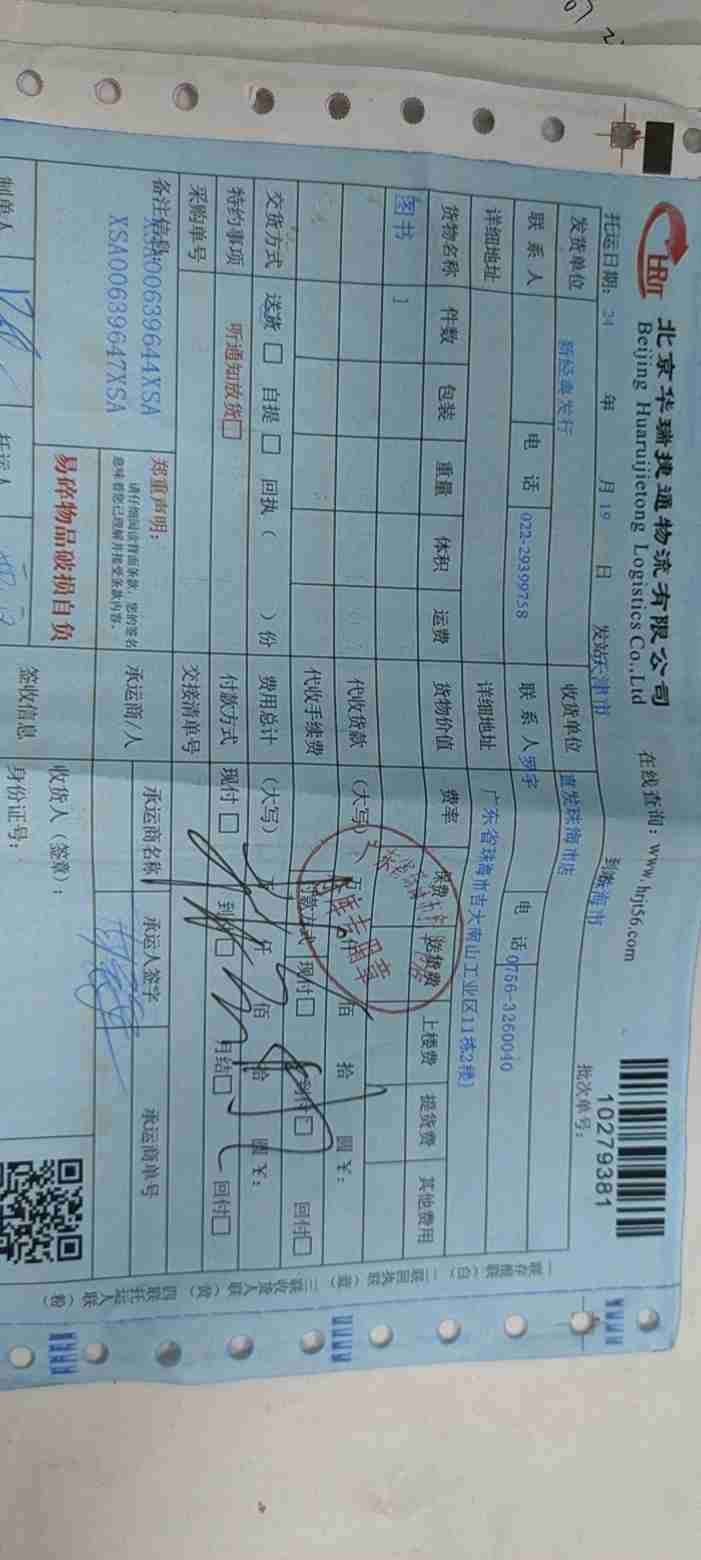 HRJT
北京华瑞捷通物流有限公司
Beijing Huaruijietong Logistics Co.,Ltd
在线查询：www.hrjt56.com
10279381
托运日期：24 年 月19 日 发站天津市 到 珠海市 批次单号：
发货单位 新经典发行 收货单位 直发珠海市店
联系人 电话 022-29399758 联系人 罗宇 电话 0756-3260040
详细地址 详细地址 广东省珠海市吉大南山工业区11栋2楼）
货物名称 件数 包装 重量 体积 运费 货物价值 费率 保费 送货费 上楼费 提货费 其他费用
图书 1
代收货款 （大写） 万 仟 佰 拾 圆 ￥：
代收手续费 付款方式 现付□ 到付□ 回付□
交货方式 送货□ 自提□ 回执（ ）份 费用总计 （大写） 万 仟 佰 拾 圆 ￥：
特约事项 听通知放货□ 付款方式 现付□ 到付□ 月结□ 回付□
采购单号 交接清单号
备注信息：XSA00639644XSA
XSA00639647XSA
郑重声明：
请仔细阅读背面条款，您的签名
意味着您已理解并接受条款内容。
易碎物品破损自负
承运商/人 承运商名称 承运人签字 承运商单号
制单人 托运人 签收信息 收货人（签章）：
身份证号：
一联存根联（白） 二联回执联（蓝） 三联收货人联（黄） 四联托运人联（粉）